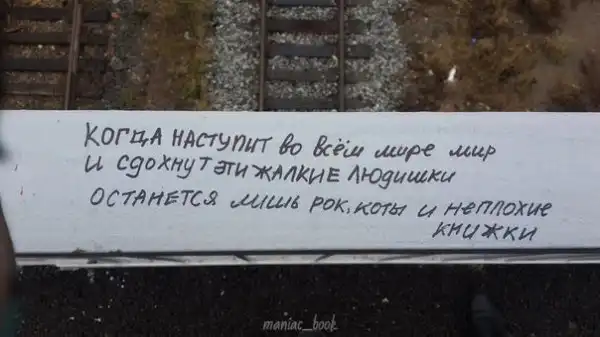 КОГДА НАСТУПИТ во всём мире мир
И СДОХНУТ ЭТИ ЖАЛКИЕ ЛЮДИШКИ
ОСТАНЕТСЯ лишь РОК, КОТЫ И НЕПЛОХИЕ
КНИЖКИ
maniac_book